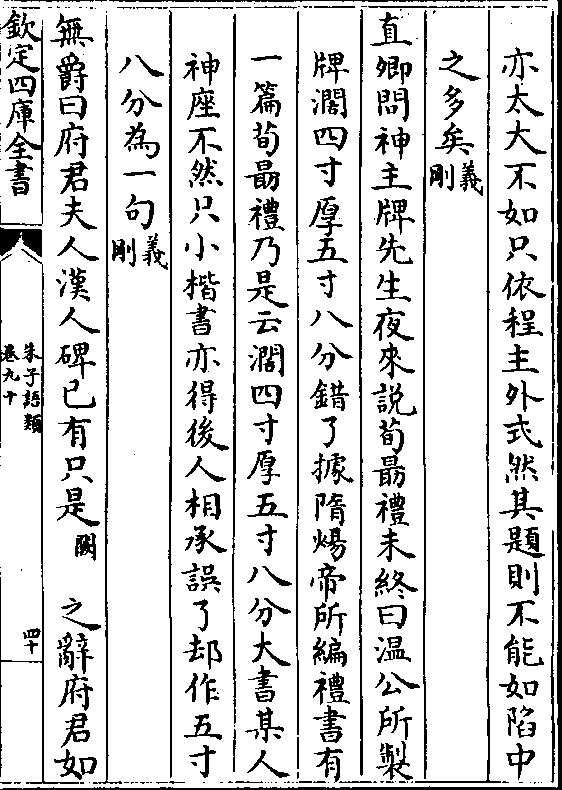 亦太大不如只依程主外式然其題則不能如陷中
之多矣義剛
直卿問神主牌先生夜來說荀朂禮未終曰溫公所製
牌濶四寸厚五寸八分錯了據隋煬帝所編禮書有
一篇荀朂禮乃是云濶四寸厚五寸八分大書某人
神座不然只小楷書亦得後人相承誤了却作五寸
八分為一句義剛
無爵曰府君夫人漢人碑已有只是闕之辭府君如
欽定四庫全書
朱子語類
卷九十
四十